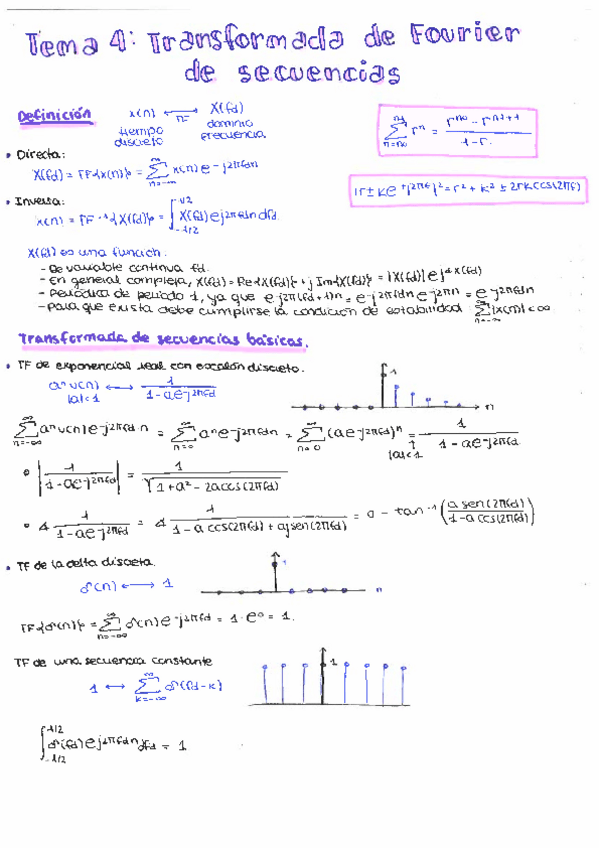 Tema 4: Transformada de Fourier
de secuencias
Definición
x(n) ⟷ X(fd)
tiempo discreto
dominio frecuencia
∑_{n=n0}^{n1} r^n = (r^{n0} - r^{n1+1}) / (1-r)
• Directa:
X(fd) = TF{x(n)} = ∑_{n=-∞}^{∞} x(n) e^{-j2πfdn}
|r ± ke^{+j2πf}|² = r² + k² ± 2rk cos(2πf)
• Inversa:
x(n) = TF^{-1}{X(fd)} = ∫_{-1/2}^{1/2} X(fd) e^{j2πfdn} dfd
X(fd) es una función:
- De variable continua fd.
- En general compleja, X(fd) = Re{X(fd)} + j Im{X(fd)} = |X(fd)| e^{j∡X(fd)}
- Periódica de periodo 1, ya que e^{-j2π(fd+1)n} = e^{-j2πfdn} e^{-j2πn} = e^{-j2πfdn}
- Para que exista debe cumplirse la condición de estabilidad ∑_{n=-∞}^{∞} |x(n)| < ∞
Transformada de secuencias básicas.
• TF de exponencial real con escalón discreto.
a^n u(n) ⟷ 1 / (1-ae^{-j2πfd})
|a|<1
1
n
∑_{n=-∞}^{∞} a^n u(n) e^{-j2πfdn} = ∑_{n=0}^{∞} a^n e^{-j2πfdn} = ∑_{n=0}^{∞} (ae^{-j2πfd})^n = 1 / (1-ae^{-j2πfd})
↑
|a|<1
∘ |1 / (1-ae^{-j2πfd})| = 1 / √(1+a²-2a cos(2πfd))
∘ ∡ 1 / (1-ae^{-j2πfd}) = ∡ 1 / (1-a cos(2πfd) + aj sen(2πfd)) = 0 - tan^{-1}(a sen(2πfd) / (1-a cos(2πfd)))
• TF de la delta discreta.
δ(n) ⟷ 1
1
n
TF{δ(n)} = ∑_{n=-∞}^{∞} δ(n) e^{-j2πfdn} = 1 · e^0 = 1.
TF de una secuencia constante
1 ⟷ ∑_{k=-∞}^{∞} δ(fd-k)
1
∫_{-1/2}^{1/2} δ(fd) e^{j2πfdn} dfd = 1